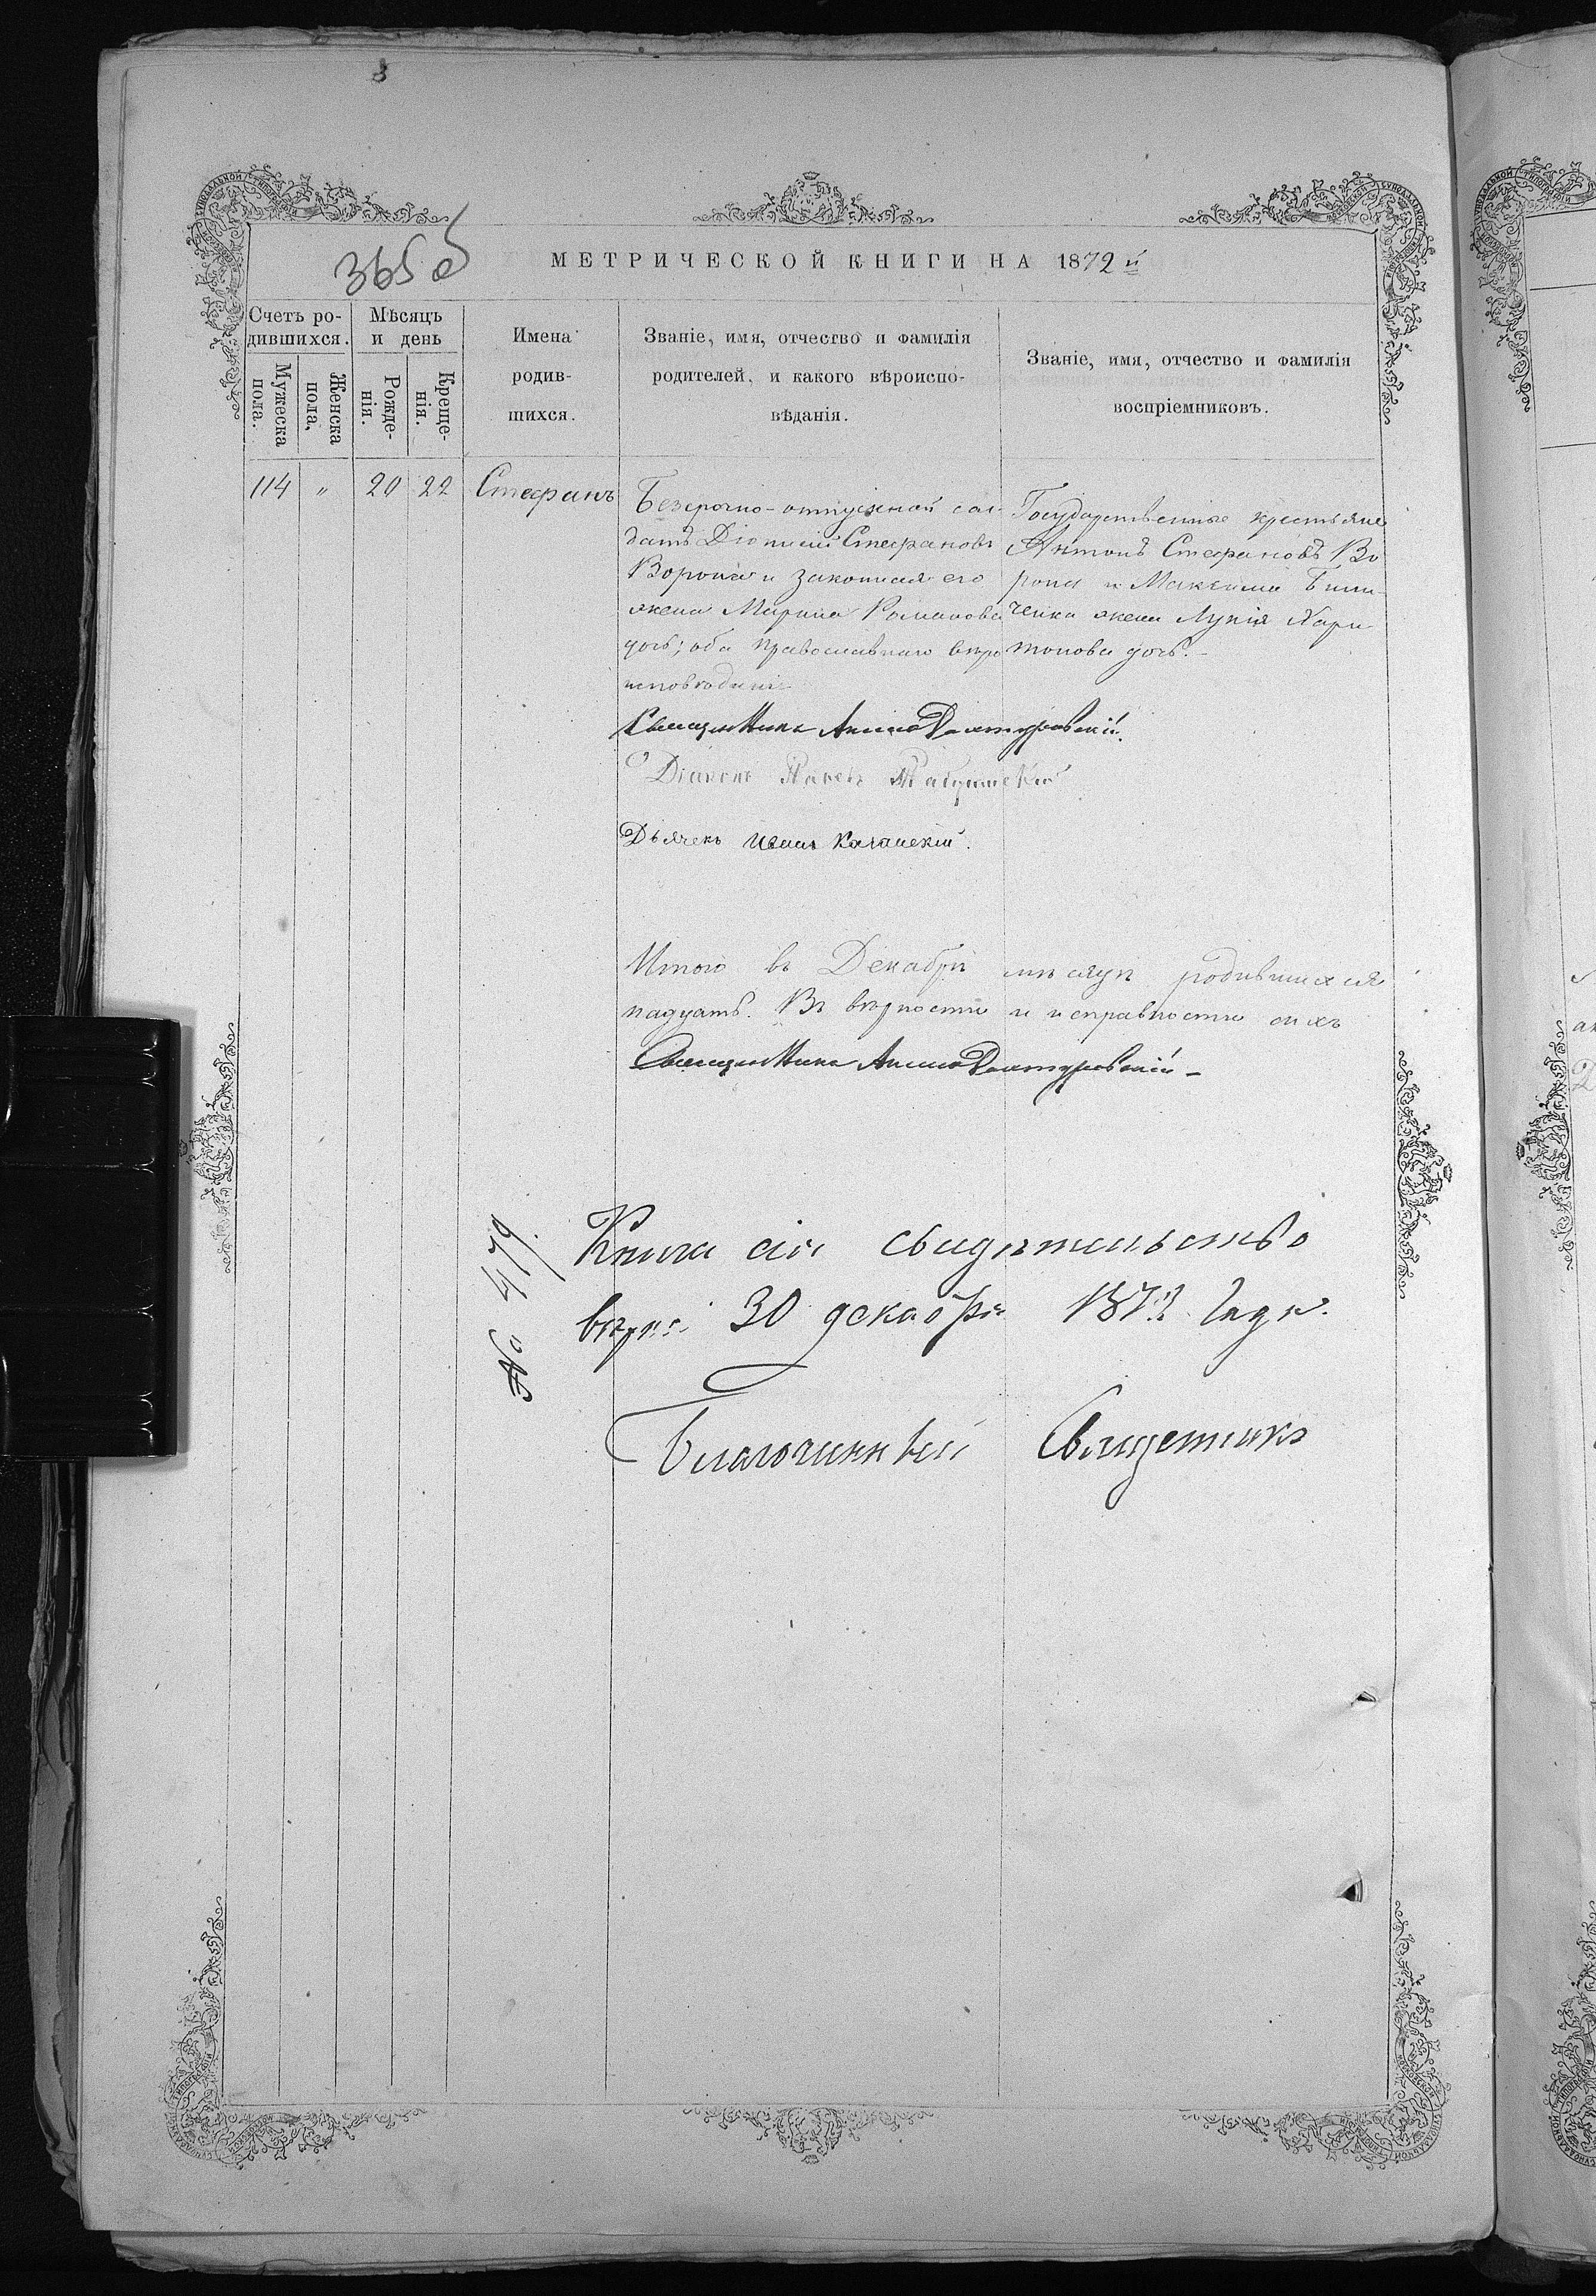 365 об
МЕТРИЧЕСКОЙ КНИГИ НА 1872 й
Счетъ ро-
дившихся.
Мужеска
пола.
Женска
пола,
Мѣсяцъ
и день
Рожде-
нія.
Креще-
нія.
Имена
родив-
шихся.
Званіе, имя, отчество и фамилія
родителей, и какого вѣроиспо-
вѣданія.
Званіе, имя, отчество и фамилія
воспріемниковъ.
114 " 20 22 Стефанъ
Безсрочно-отпускной сол-
датъ Діонисій Стефановъ
Ворона и законная его
жена Марина Романова
дочь; оба православнаго вѣро
исповѣданія
Государственные крестьяне
Антонъ Стефановъ Во
рона и Максима
ченка жена Лукія Хари
тонова дочь.-
Священникъ
Діаконъ
Дьячекъ Иванъ
Итого въ Декабрѣ мѣсяцѣ родившихся
надцать. Въ вѣрности и исправности сихъ
Священникъ
№ 479.
Книга сія свидѣтельство
вѣрна 30 декабря 1872 года.
Благочинный Священникъ